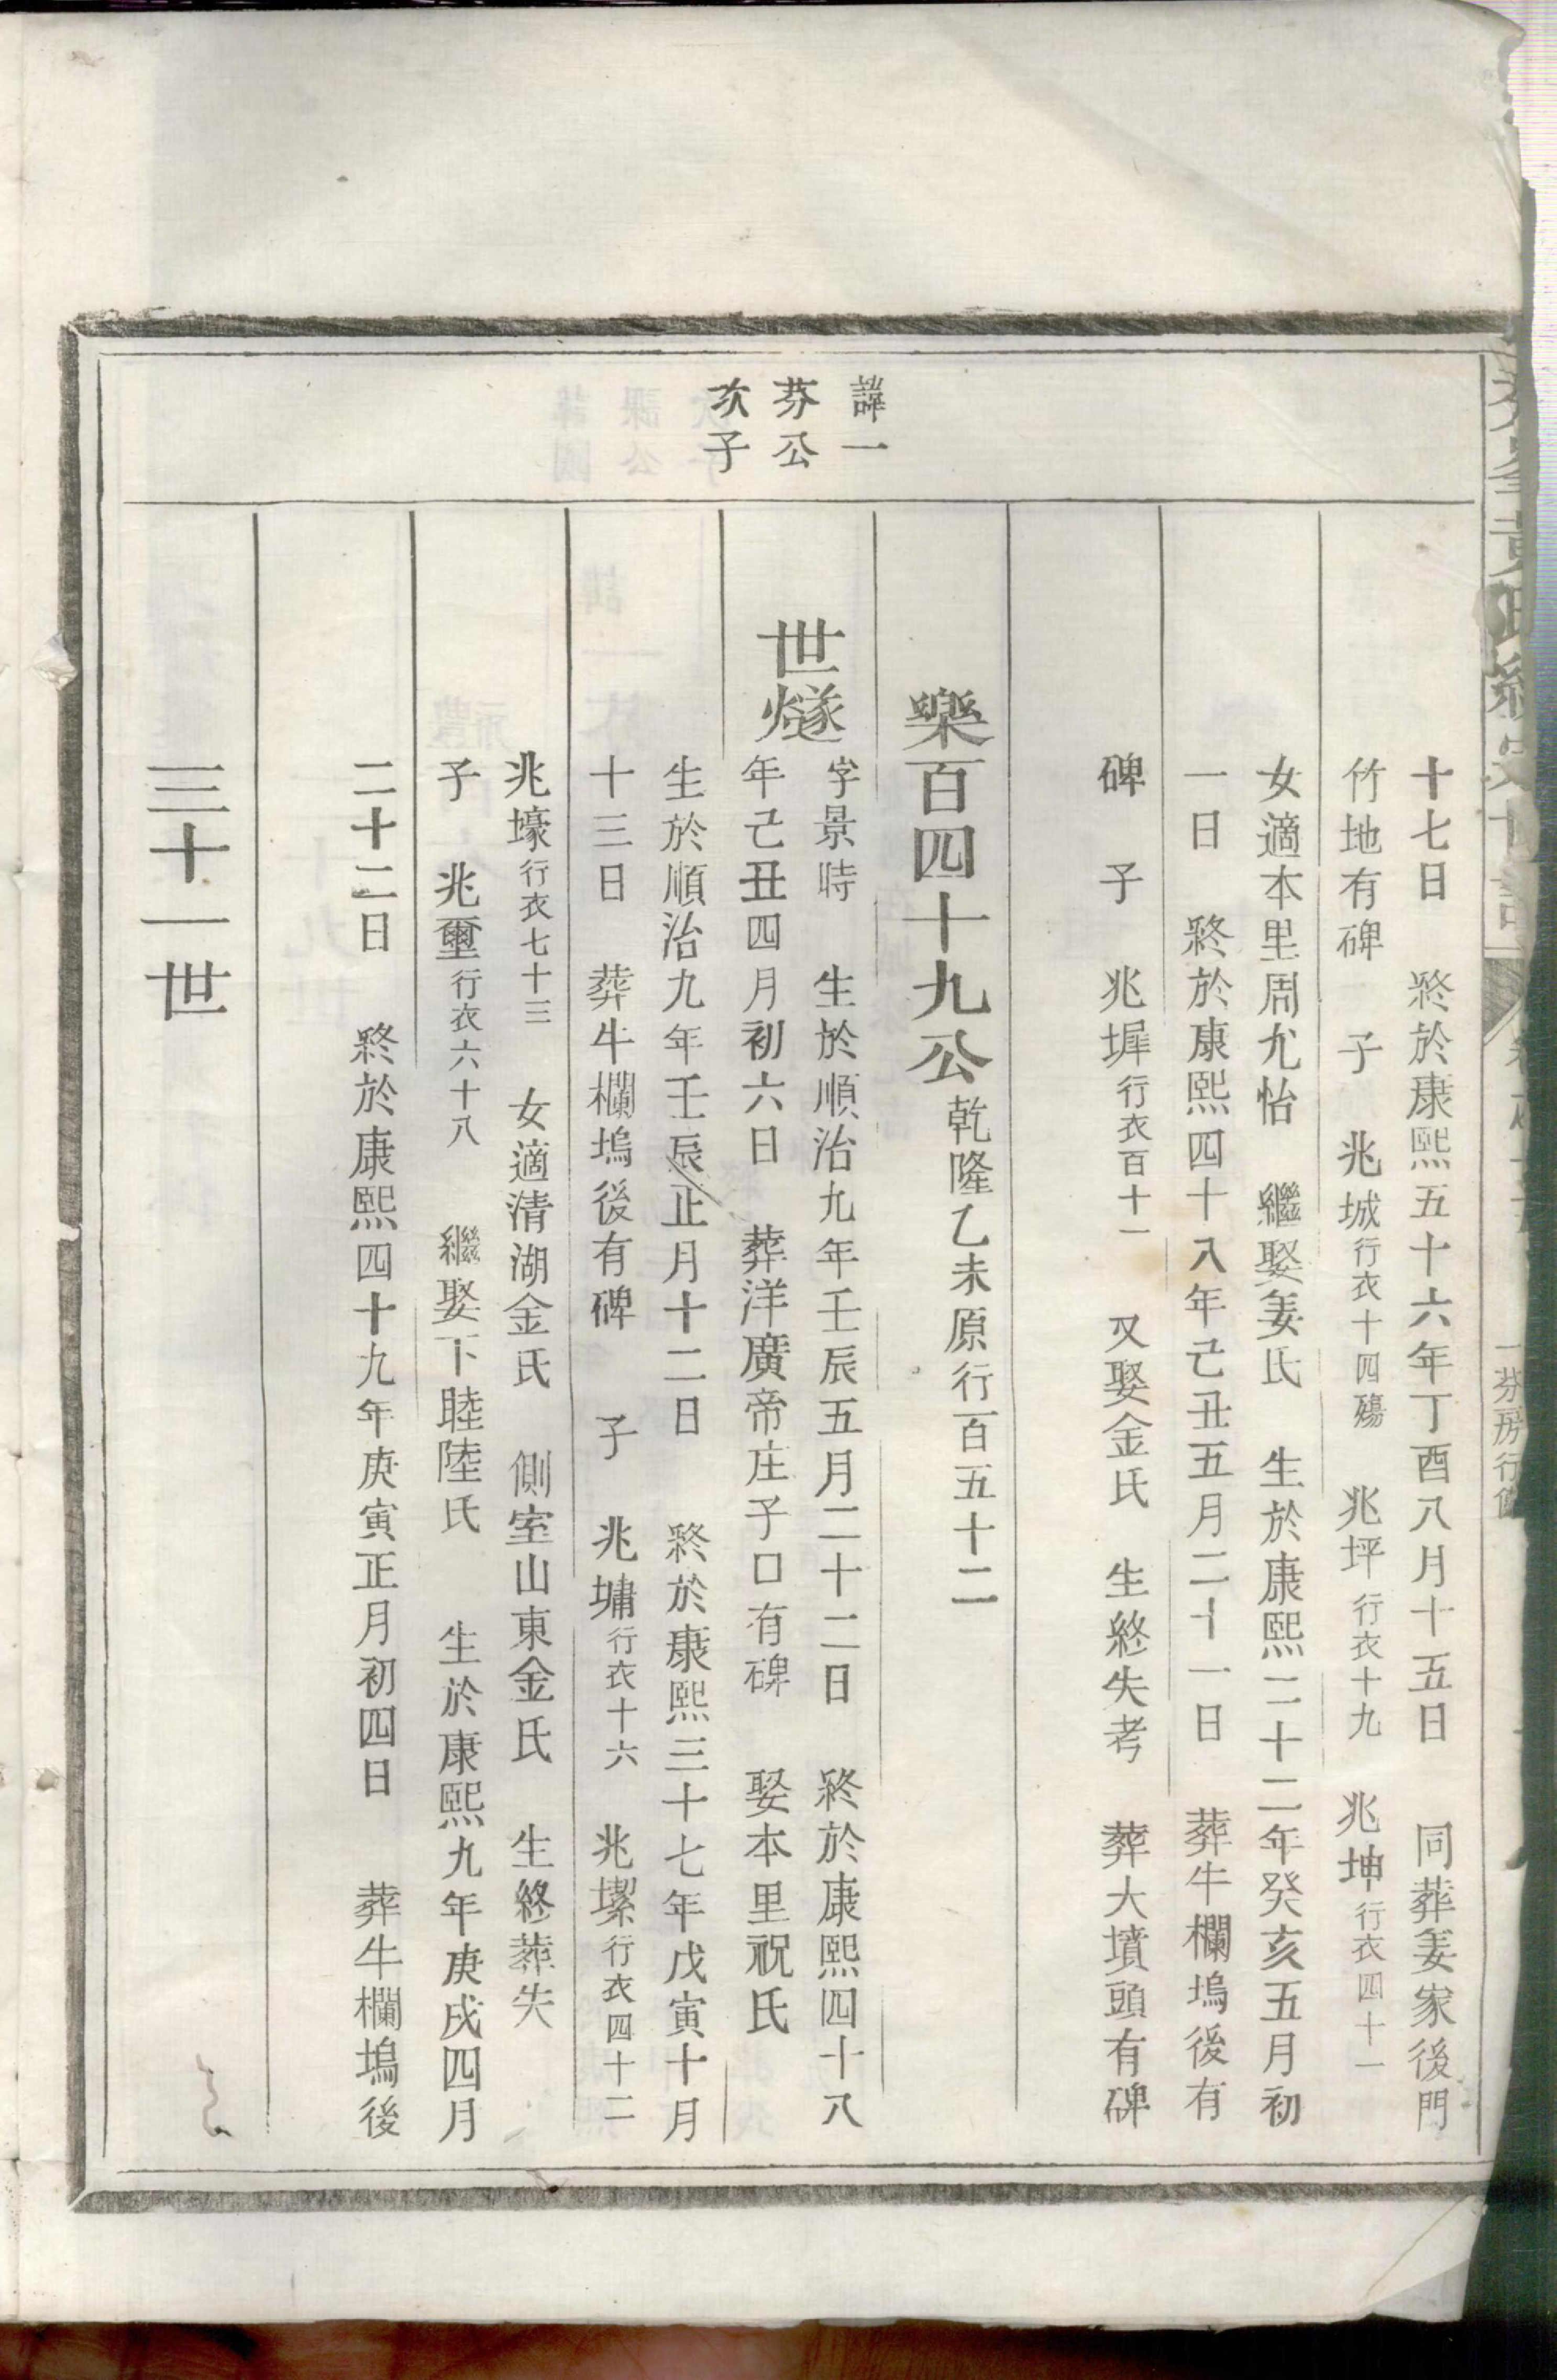 十七日　終於康熙五十六年丁酉八月十五日　同葬姜家後門
竹地有碑　子　兆城行衣十四殤　兆坪行衣十九　兆坤行衣四十一
女適本里周尤怡　繼娶姜氏　生於康熙二十二年癸亥五月初
一日　終於康熙四十八年己丑五月二十一日　葬牛欄塢後有
碑　子　兆墀行衣百十一　又娶金氏　生終失考　葬大墳頭有碑
樂百四十九公乾隆乙未原行百五十二
諱一
芬公
次子
世燧
字景時　生於順治九年壬辰五月二十二日　終於康熙四十八
年己丑四月初六日　葬洋廣帝庄子口有碑　娶本里祝氏
生於順治九年壬辰正月十二日　終於康熙三十七年戊寅十月
十三日　葬牛欄塢後有碑　子　兆墉行衣十六　兆㙼行衣四十二
兆壕行衣七十三　女適清湖金氏　側室山東金氏　生終葬失
子　兆壐行衣六十八　繼娶下睦陸氏　生於康熙九年庚戌四月
二十二日　終於康熙四十九年庚寅正月初四日　葬牛欄塢後
三十一世